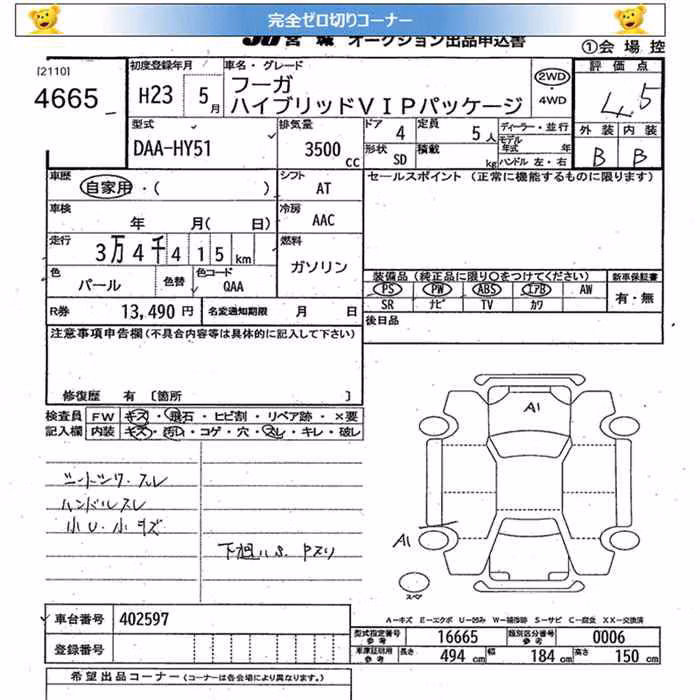 完全ゼロ切りコーナー
JU宮城 オークション出品申込書
①会場控
[2110]
4665
初度登録年月
H23 5月
車名・グレード
フーガ
ハイブリッドVIPパッケージ
2WD
・
4WD
評価点
4.5
外装 内装
B B
型式
DAA-HY51
排気量
3500 cc
ドア 4
定員 5人
形状 SD
積載 kg
ディーラー・並行
モデル年式 年
ハンドル 左・右
車歴
自家用・( )
シフト AT
セールスポイント (正常に機能するものに限ります)
車検
年 月( 日)
冷房 AAC
走行
3万4千415km
燃料
ガソリン
色
パール
色替
色コード
QAA
装備品 (純正品に限り〇をつけてください)
新車保証書
PS PW ABS エアB AW
有・無
SR ナビ TV カワ
R券 13,490円
名変通知期限 月 日
後日品
注意事項申告欄(不具合内容等は具体的に記入して下さい)
修復歴 有 [箇所 ]
検査員
記入欄
FW キズ・飛石・ヒビ割・リペア跡・×要
内装 キズ・汚レ・コゲ・穴・スレ・キレ・破レ
ハンドルスレ
小U・小キズ
A1
A1
スペア
A-キズ E-エクボ U-凹み W-補修跡 S-サビ C-腐食 XX-交換済
車台番号 402597
登録番号
型式指定番号
参考
16665
類別区分番号
参考
0006
車庫証明用
参考
長さ 494cm 幅 184cm 高さ 150cm
希望出品コーナー (コーナーは各会場により異なります。)